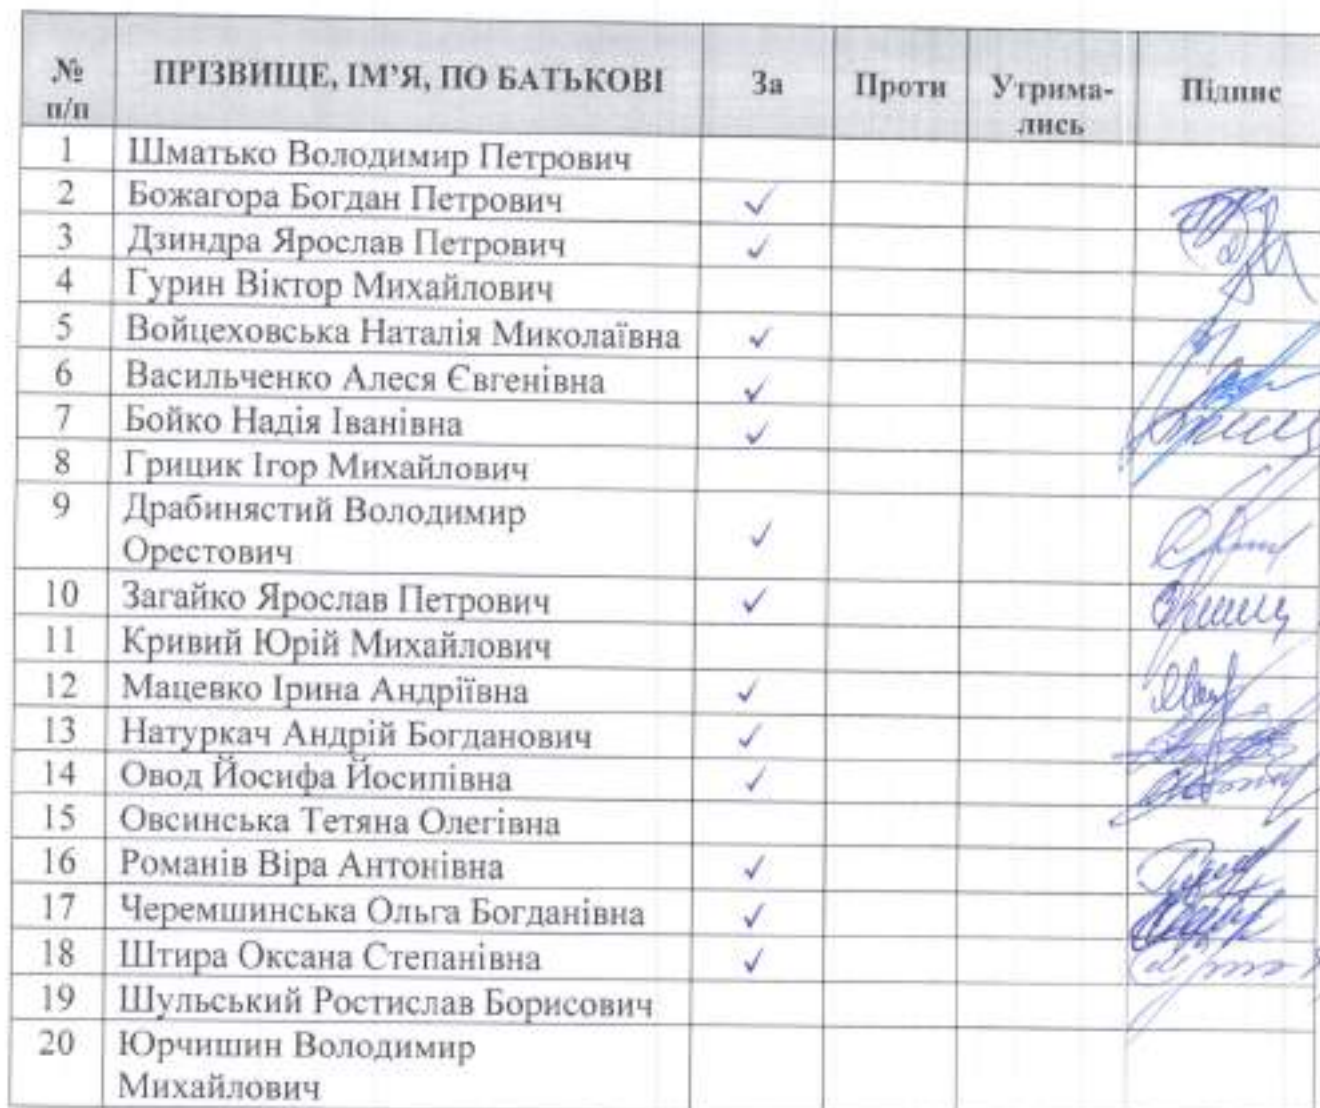 № п/п ПРІЗВИЩЕ, ІМ’Я, ПО БАТЬКОВІ За Проти Утрима-лись Підпис
1 Шматько Володимир Петрович
2 Божагора Богдан Петрович ✓
3 Дзиндра Ярослав Петрович ✓
4 Гурин Віктор Михайлович
5 Войцеховська Наталія Миколаївна ✓
6 Васильченко Алеся Євгенівна ✓
7 Бойко Надія Іванівна ✓
8 Грицик Ігор Михайлович
9 Драбинястий Володимир
Орестович ✓
10 Загайко Ярослав Петрович ✓
11 Кривий Юрій Михайлович
12 Мацевко Ірина Андріївна ✓
13 Натуркач Андрій Богданович ✓
14 Овод Йосифа Йосипівна ✓
15 Овсинська Тетяна Олегівна
16 Романів Віра Антонівна ✓
17 Черемшинська Ольга Богданівна ✓
18 Штира Оксана Степанівна ✓
19 Шульський Ростислав Борисович
20 Юрчишин Володимир
Михайлович